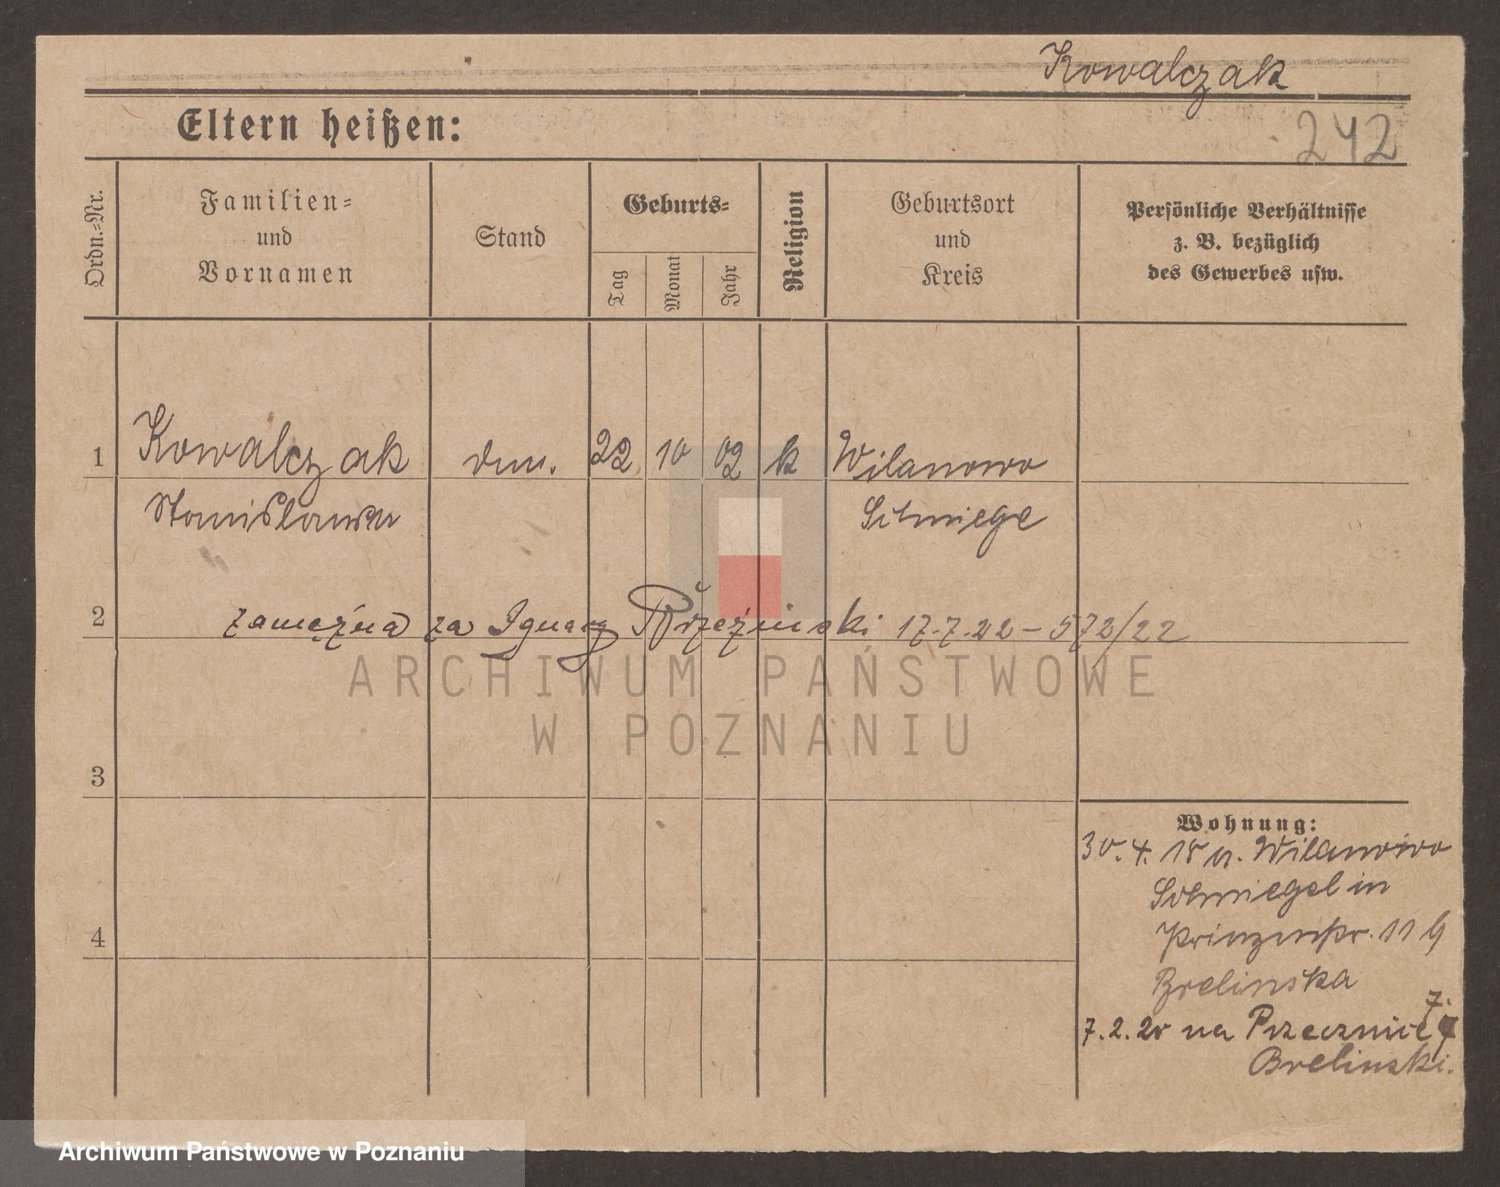 Kowalczak
242
Eltern heißen:
Ordn.-Nr.
Familien-
und
Vornamen
Stand
Geburts-
Tag
Monat
Jahr
Religion
Geburtsort
und
Kreis
Persönliche Verhältnisse
z. B. bezüglich
des Gewerbes usw.
1 Kowalczak 22 10 02 k Wilanowo
Stanisława Schmiege
2 zamężna za Ignacy Brzeziński 17.7.22 – 572/22
ARCHIWUM PAŃSTWOWE
W POZNANIU
3
Wohnung:
30.4.18 n. Wilanowo
Schmiegel in
Prinzenstr. 11 b
Brelinska
7.2.20 na Przecznice 7.
Brelinski.
4
Archiwum Państwowe w Poznaniu